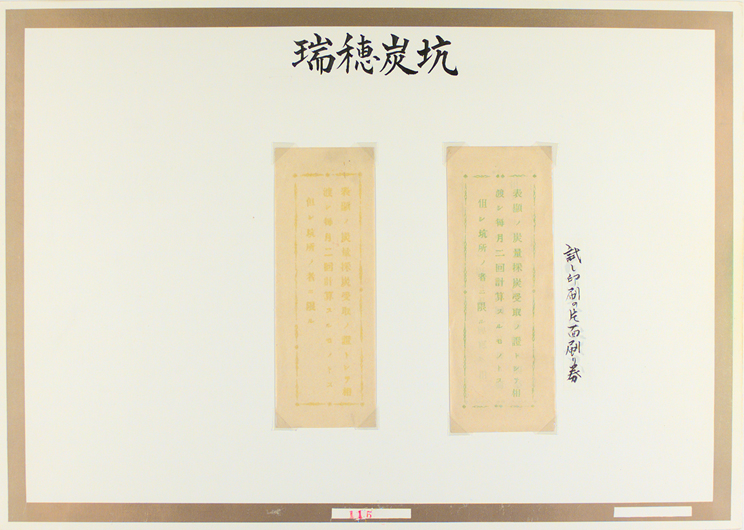 瑞穂炭坑
表記ノ炭量採炭受取ノ證トシテ相
渡シ毎月二回計算スルモノトス
但シ坑所ノ者ニ限
試し印刷の片面刷り券
表記ノ炭量採炭受取ノ證トシテ相
渡シ毎月二回計算スルモノトス
但シ坑所ノ者ニ限ル
115